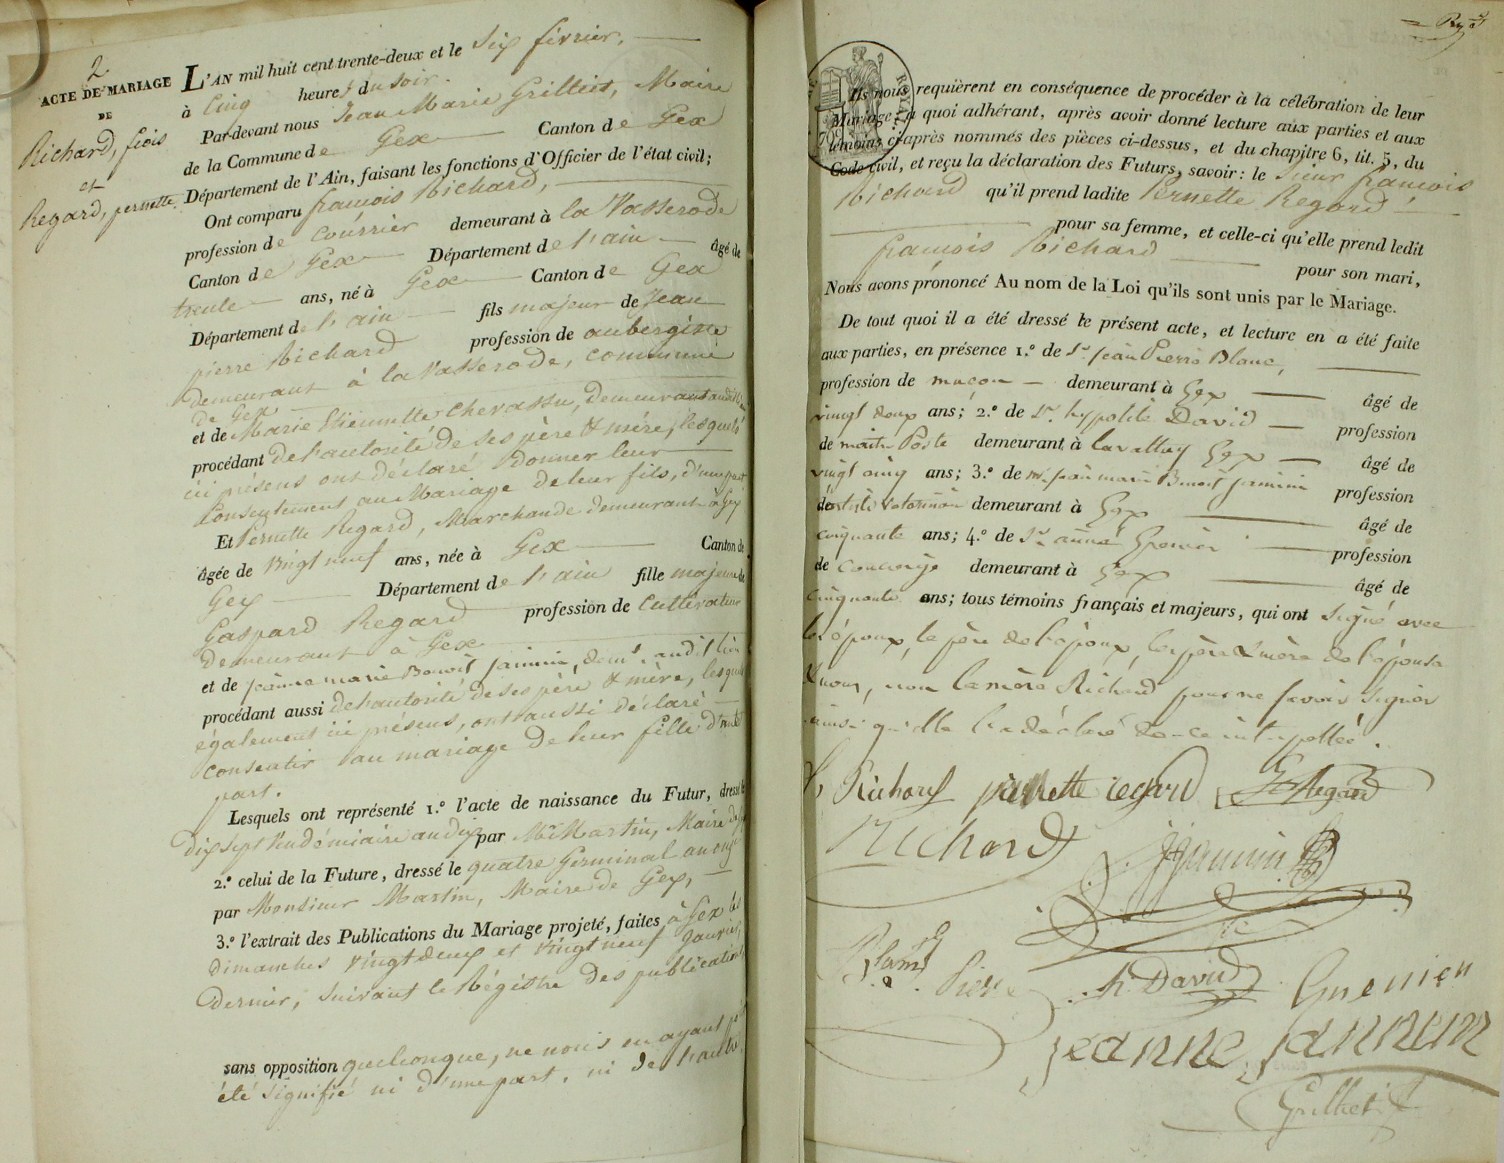 2
ACTE DE MARIAGE
DE
Richard, fcois
et
Regard, pernette.
L'AN mil huit cent trente-deux et le Six février,
à Cinq heures du soir.
Par-devant nous Jean Marie Grilliet, Maire
de la Commune de Gex Canton de Gex
Département de l'Ain, faisant les fonctions d'Officier de l'état civil;
Ont comparu françois Richard,
profession de Courrier demeurant à la Vasserode
Canton de Gex Département de l'ain âgé de
trente ans, né à Gex Canton de Gex
Département de l'ain fils majeur de Jean
pierre Richard profession de aubergiste
demeurant à la Vasserode, commune
de Gex
et de Marie Etiennette Chevassu, demeurant audit lieu
procédant de l'autorité de ses père & mère, lesquels
ici présens ont déclaré donner leur
Consentement au Mariage de leur fils, d'une part
Et Pernette Regard, Marchande demeurant à Gex
âgée de Vingt neuf ans, née à Gex Canton de
Gex Département de l'ain fille majeure de
Gaspard Regard profession de Cultivateur
Demeurant à Gex
et de Jeanne marie Benoit Jannin, demt. audit lieu
procédant aussi de l'autorité de ses père & mère, lesquels
également ici présens, ont aussi déclaré
consentir au mariage de leur fille d'autre
part.
Lesquels ont représenté 1.º l'acte de naissance du Futur, dressé le
dix sept Vendémiaire an dix par Mr Martin, Maire de Gex
2.º celui de la Future, dressé le quatre Germinal an onze
par Monsieur Martin, Maire de Gex,
3.º l'extrait des Publications du Mariage projeté, faites à Gex les
dimanches vingt deux et vingt neuf Janvier
dernier, suivant le Régistre des publications
sans opposition quelconque, ne nous en ayant pas
été signifié ni d'une part, ni de l'autre
Ils nous requièrent en conséquence de procéder à la célébration de leur
Mariage; à quoi adhérant, après avoir donné lecture aux parties et aux
témoins ci-après nommés des pièces ci-dessus, et du chapitre 6, tit. 5, du
Code civil, et reçu la déclaration des Futurs, savoir: le Sieur françois
Richard qu'il prend ladite Pernette Regard
pour sa femme, et celle-ci qu'elle prend ledit
françois Richard pour son mari,
Nous avons prononcé Au nom de la Loi qu'ils sont unis par le Mariage.
De tout quoi il a été dressé le présent acte, et lecture en a été faite
aux parties, en présence 1.º de Sr. Jean Pierre Blanc,
profession de maçon demeurant à Gex âgé de
vingt deux ans; 2.º de Sr. hyppolite David profession
de maitre Poste demeurant à Lavattay Gex âgé de
vingt cinq ans; 3.º de Mr. jean marie Benoit jannin profession
de artiste vétérinaire demeurant à Gex âgé de
cinquante ans; 4.º de Sr. aimé profession
de Concierge demeurant à Gex âgé de
cinquante ans; tous témoins français et majeurs, qui ont signé avec
les époux, le père de l'époux, les père & mère de l'épouse
& nous, non la mère Richard pour ne savoir signer
ainsi qu'elle l'a déclaré de ce interpellée.
fs Richard pernette regard G Regard
Richard Jannin
Blanc Pierre h. David
jeanne jannin
Grilliet